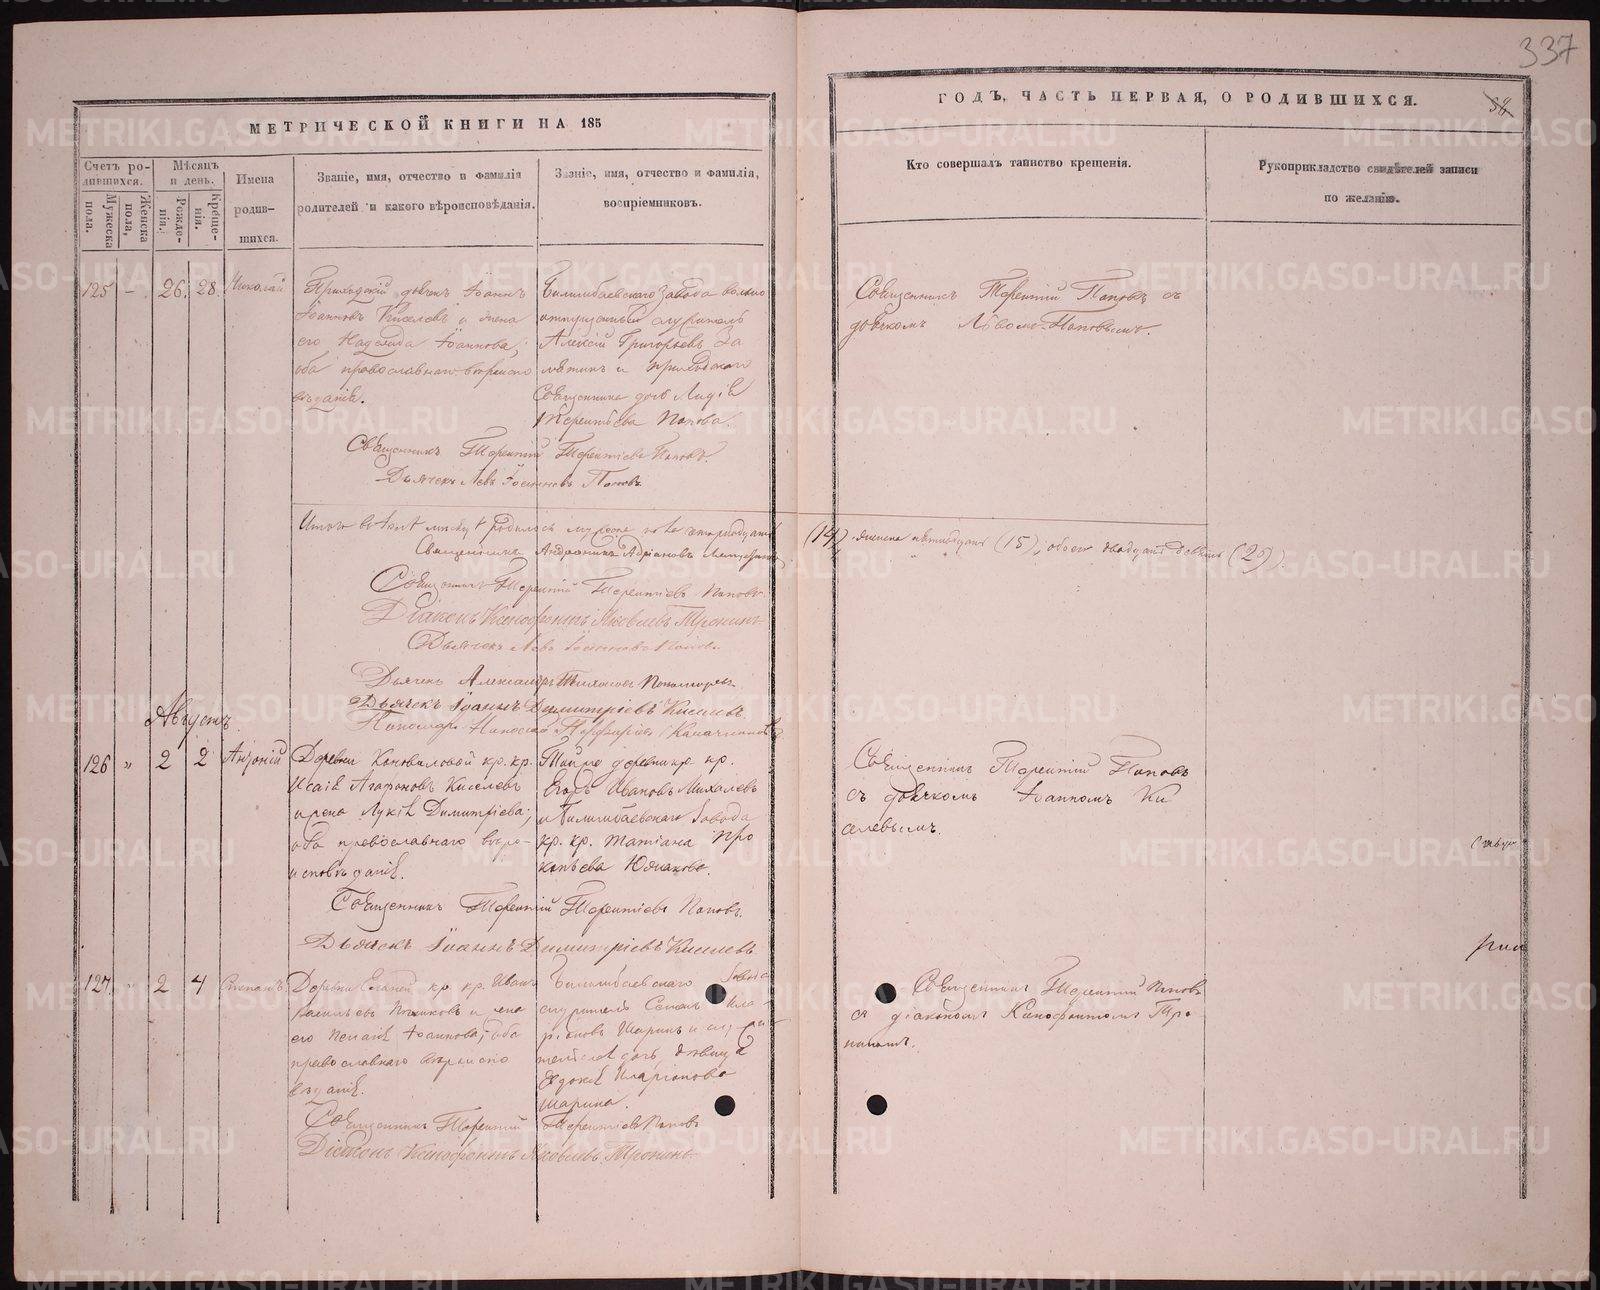 337
МЕТРИЧЕСКОЙ КНИГИ НА 185
Счетъ ро-
дившихся.
Мужеска
пола.
Женска
пола,
Мѣсяцъ
и день.
Рожде-
нія.
Креще-
нія.
Имена
родив-
шихся.
Званіе, имя, отчество и фамилія
родителей и какого вѣроисповѣданія.
Званіе, имя, отчество и фамилія,
воспріемниковъ.
ГОДЪ, ЧАСТЬ ПЕРВАЯ, О РОДИВШИХСЯ.
Кто совершалъ таинство крещенія.
Рукоприкладство свидѣтелей записи
по желанію.
125 - 26. 28. Николай
Приходскій дьячекъ Іоаннъ
Іоанновъ Киселевъ и жена
его Надежда Іоаннова;
оба православнаго вѣроиспо
вѣданія.
Билимбаевскаго Завода вольно
отпущенный служитель
Алексій Григорьевъ За
мятинъ и приходскаго
Священника дочь Лидія
Терентьева Попова.
Священникъ Терентій Поповъ съ
дьячкомъ Львомъ Поповымъ.
Священникъ Терентій Терентіевъ Поповъ.
Дьячекъ Левъ Іоанновъ Поповъ
Итого въ Іюлѣ мѣсяцѣ родилось мужеска пола четырнадцать
(14), женска пятнадцать (15), обоего двадцать девять (29).
Священникъ Андроникъ Адріановъ
Священникъ Терентій Терентіевъ Поповъ.
Діаконъ Ксенофонтъ Яковлевъ Тронинъ
Дьячекъ Левъ Іоанновъ Поповъ
Дьячекъ Александръ Пономаревъ
Дьячекъ Іоаннъ Димитріевъ Киселевъ
Пономарь Николай
Августъ.
126 " 2 2 Антоній
Деревни Коноваловой кр. кр.
Исаія Агафоновъ Киселевъ
и жена Лукія Димитріева;
оба православнаго вѣро-
исповѣданія.
Той же деревни кр. кр.
Егоръ Ивановъ Михалевъ
и Билимбаевскаго Завода
кр. кр. Татіана Про
копьева Южакова.
Священникъ Терентій Поповъ
съ дьячкомъ Іоанномъ Ки
селевымъ.
Священникъ Терентій Терентіевъ Поповъ.
Дьячекъ Іоаннъ Димитріевъ Киселевъ
127. " 2 4 Степанъ
Деревни Еланей кр. кр. Иванъ
Васильевъ и жена
его Пелагія Іоаннова; оба
православнаго вѣроиспо
вѣданія.
Билимбаевскаго Завода
служитель Семенъ Ила-
ріоновъ Ширинъ и служи
тельская дочь дѣвица
Евдокія Иларіонова
Ширина.
Священникъ Терентій Поповъ
съ діакономъ Ксенофонтомъ Тро
нинымъ.
Священникъ Терентій Терентіевъ Поповъ
Діаконъ Ксенофонтъ Яковлевъ Тронинъ
METRIKI.GASO-URAL.RU